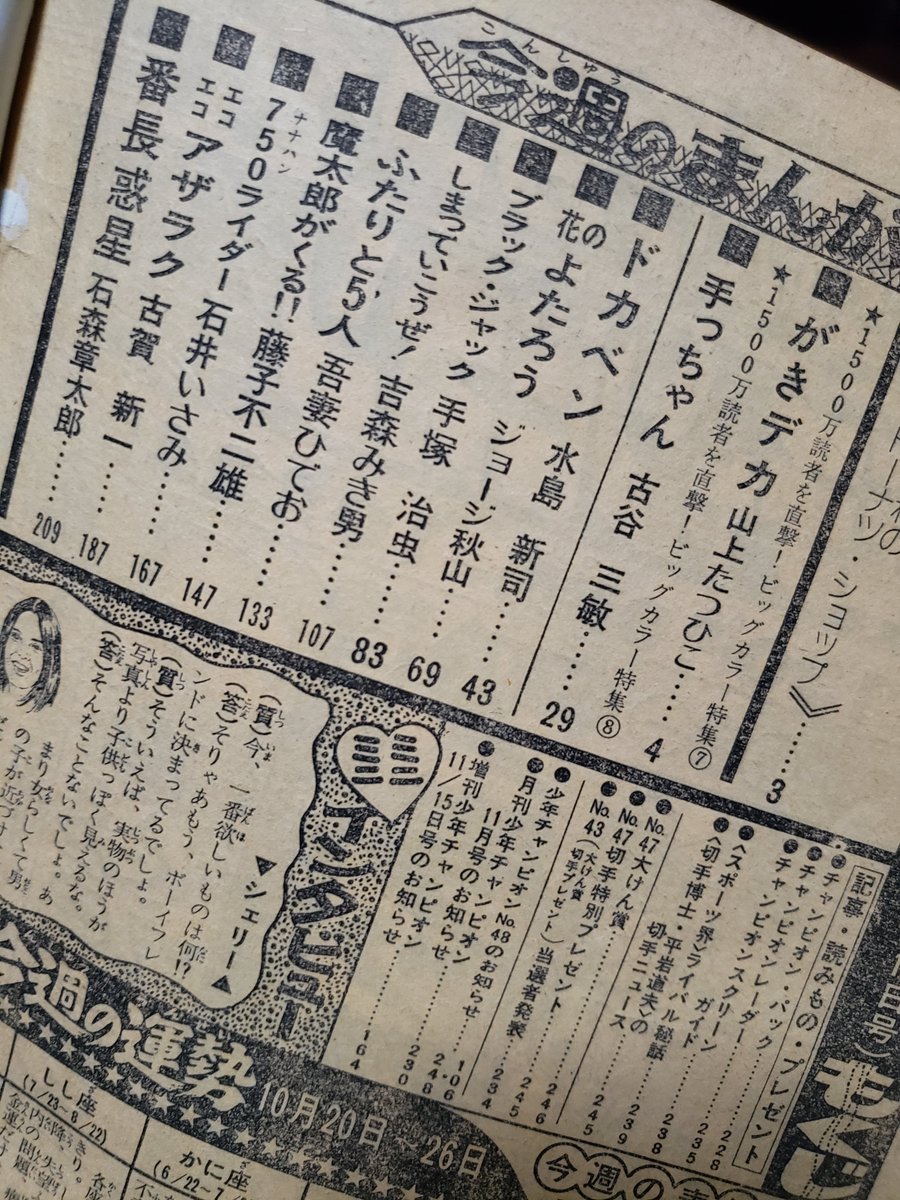 今週のまんが
こんしゅう
ドーナツ・ショップ》……3
★1500万読者を直撃!ビッグカラー特集⑦
■がきデカ 山上たつひこ……4
★1500万読者を直撃!ビッグカラー特集⑧
■手っちゃん 古谷三敏……29
■ドカベン 水島新司……43
■花のよたろう ジョージ秋山……69
■ブラック・ジャック 手塚治虫……83
■しまっていこうぜ! 吉森みき男……107
■ふたりと5人 吾妻ひでお……133
■魔太郎がくる!! 藤子不二雄……147
■750ライダー 石井いさみ……167
ナナハン
■エコエコアザラク 古賀新一……187
■番長惑星 石森章太郎……209
もくじ
記事・読みもの・プレゼント
●チャンピオン・パック
●チャンピオンレーダー……228
●チャンピオンスクリーン……235
●〈スポーツ界〉ライバル秘話……238
●〈切手博士・平岩道夫〉の切手ニュース……239
●No.47大けん賞
●No.47切手特別プレゼント……245
●No.43(大けん賞 切手プレゼント)当選者発表……234
●少年チャンピオンNo.48のお知らせ……106
●月刊少年チャンピオン11月号のお知らせ……248
●増刊少年チャンピオン11/15日号のお知らせ……230
164
インタビュー
▼シェリー▲
(質)今、一番欲しいものは何!?
(答)そりゃあもう、ボーイフレンドに決まってるでしょ。
(質)そういえば、実物のほうが写真より子供っぽく見えるな。
(答)そんなことないでしょ。あ
まり女らしくて男
の子が近づけ
今週の運勢
10月20日〜26日
しし座
(7/23〜8/22)
かに座
(6/22〜7